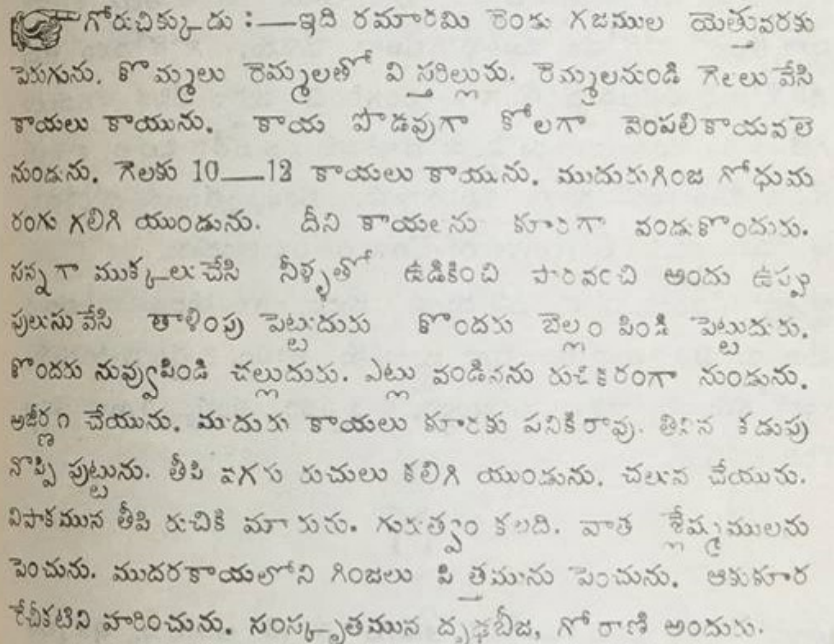 గోరుచిక్కుడు :—ఇది రమారమి రెండు గజముల యెత్తువరకు
పెరుగును. కొమ్మలు రెమ్మలతో విస్తరిల్లును. రెమ్మలనుండి గెలలు వేసి
కాయలు కాయును. కాయ పొడవుగా కోలగా వెంపలికాయవలె
నుండును. గెలకు 10—12 కాయలు కాయును. ముదురుగింజ గోధుమ
రంగు గలిగి యుండును. దీని కాయలను కూరగా వండుకొందురు.
సన్నగా ముక్కలుచేసి నీళ్ళతో ఉడికించి వారవంచి అందు ఉప్పు
పులుసువేసి తాళింపు పెట్టుదురు కొందరు బెల్లం పిండి పెట్టుదురు.
కొందరు నువ్వుపిండి చల్లుదురు. ఎట్లు వండినను రుచికరంగా నుండును.
అజీర్ణం చేయును. ముదురు కాయలు కూరకు పనికిరావు. తినిన కడుపు
నొప్పి పుట్టును. తీపి వగరు రుచులు కలిగి యుండును. చలువ చేయును.
విపాకమున తీపి రుచికి మారును. గురుత్వం కలది. వాత శ్లేష్మములను
పెంచును. ముదరకాయలోని గింజలు పిత్తమును పెంచును. ఆకుకూర
రేచీకటిని హరించును. సంస్కృతమున దృఢబీజ, గోరాణి అందురు.